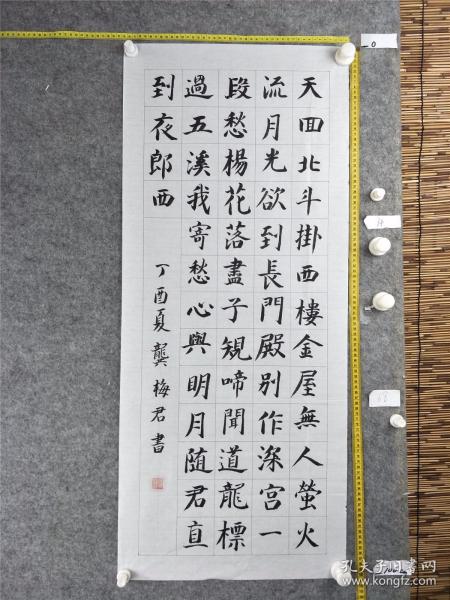 天回北斗掛西樓金屋無人螢火
流月光欲到長門殿别作深宫一
段愁楊花落盡子規啼聞道龍標
過五溪我寄愁心與明月随君直
到夜郎西
丁酉夏龔梅君書
0
孔夫子旧书网
www.kongfz.com